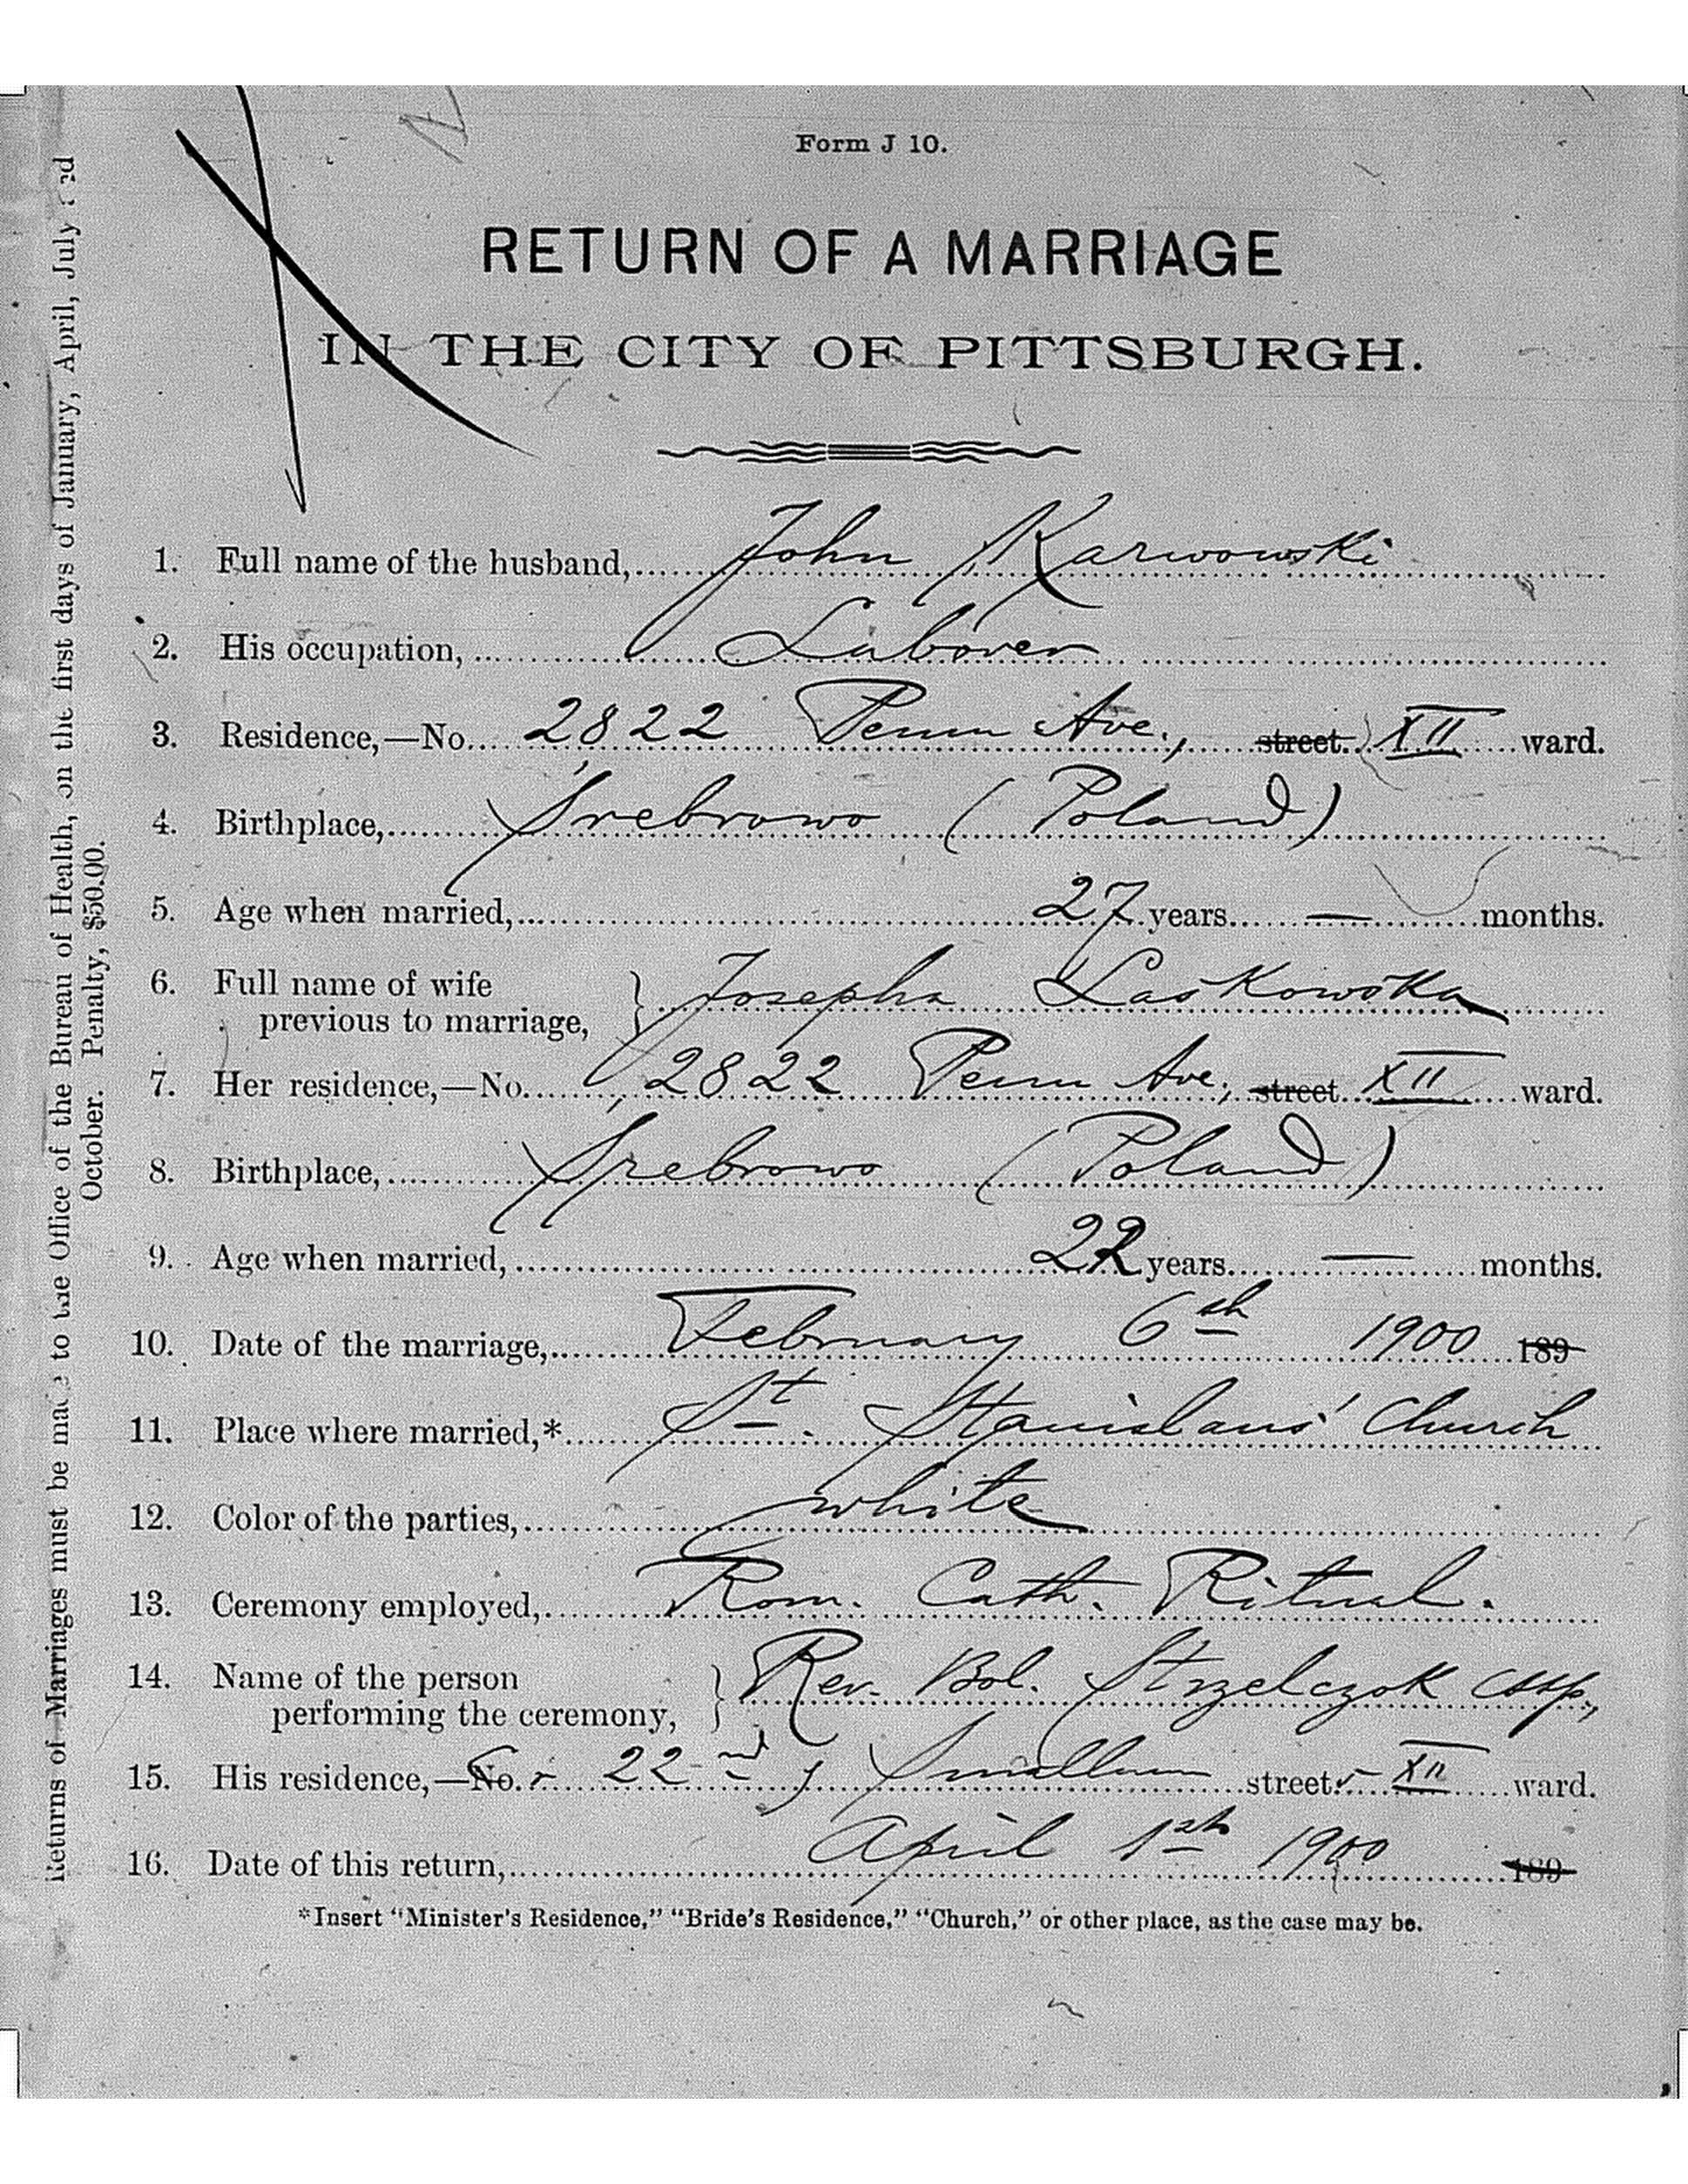 Form J 10.
RETURN OF A MARRIAGE
IN THE CITY OF PITTSBURGH.
1. Full name of the husband, John Karwowski
2. His occupation, Laborer
3. Residence,—No. 2822 Penn Ave., street. XII ward.
4. Birthplace, Srebrowo (Poland)
5. Age when married, 27 years — months.
6. Full name of wife
previous to marriage, } Josepha Laskowska
7. Her residence,—No. 2822 Penn Ave., street XII ward.
8. Birthplace, Srebrowo (Poland)
9. Age when married, 22 years — months.
10. Date of the marriage, February 6th 1900 189
11. Place where married,* St. Stanislaus' Church
12. Color of the parties, white
13. Ceremony employed, Rom. Cath. Ritual.
14. Name of the person
performing the ceremony, } Rev. Bol. Strzelczok CSSp.,
15. His residence,—No. 22nd & Smallman street XII ward.
16. Date of this return, April 1st 1900 189
*Insert "Minister's Residence," "Bride's Residence," "Church," or other place, as the case may be.
Returns of Marriages must be made to the Office of the Bureau of Health, on the first days of January, April, July and
October. Penalty, $50.00.